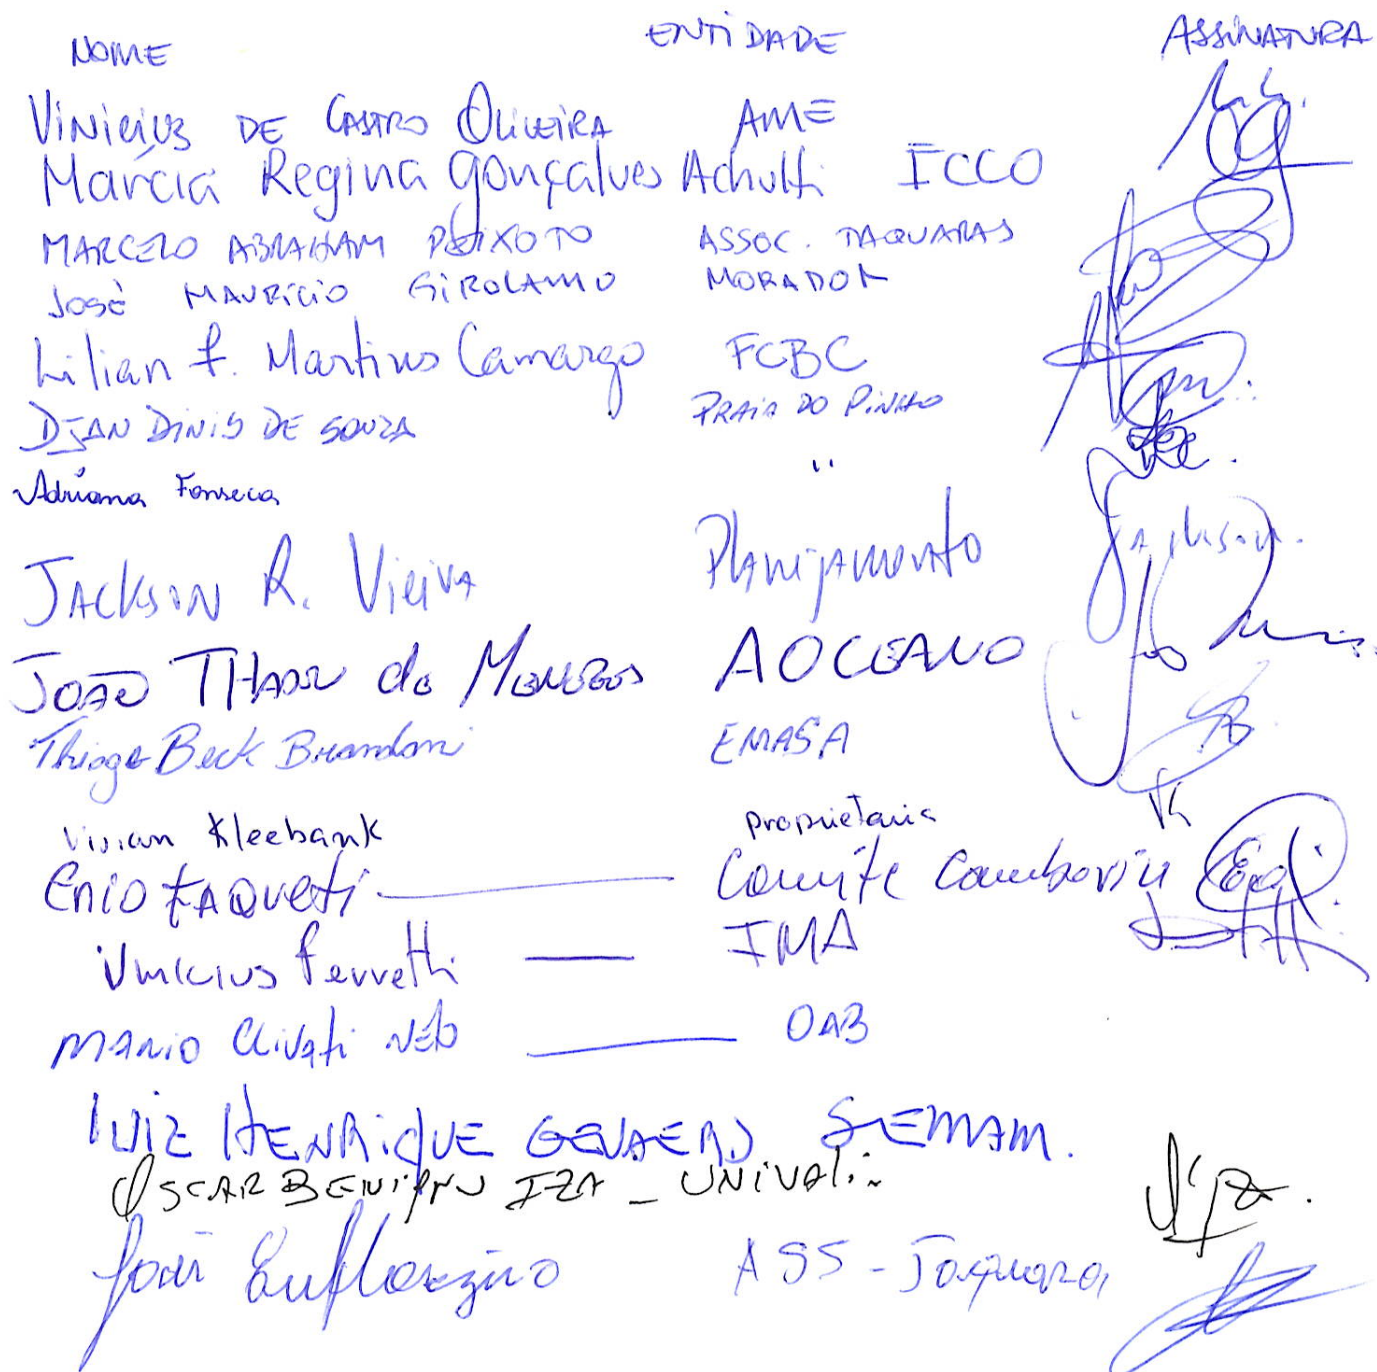 NOME ENTIDADE ASSINATURA
VINICIUS DE CASTRO OLIVEIRA AME
Márcia Regina Gonçalves Achutti ICCO
MARCELO ABRAHAM PEIXOTO ASSOC. TAQUARAS
JOSÉ MAURICIO GIROLAMO MORADOR
Lilian F. Martins Camargo FCBC
DJAN DINIS DE SOUZA PRAIA DO PINHO
Adriana Fonseca "
JACKSON R. VIEIRA Planejamento Jackson.
JOÃO de MENEZES AOCEANO
Thiago Beck Brandoni EMASA
Vivian Kleebank proprietaria
ENIO FAQUETI Comite Camboriu
Vinicius Ferretti IMA
MARIO NETO OAB
LUIZ HENRIQUE GEVAERD SEMAM.
OSCAR BENIGNO IZA - UNIVALI
ASS - Taquara